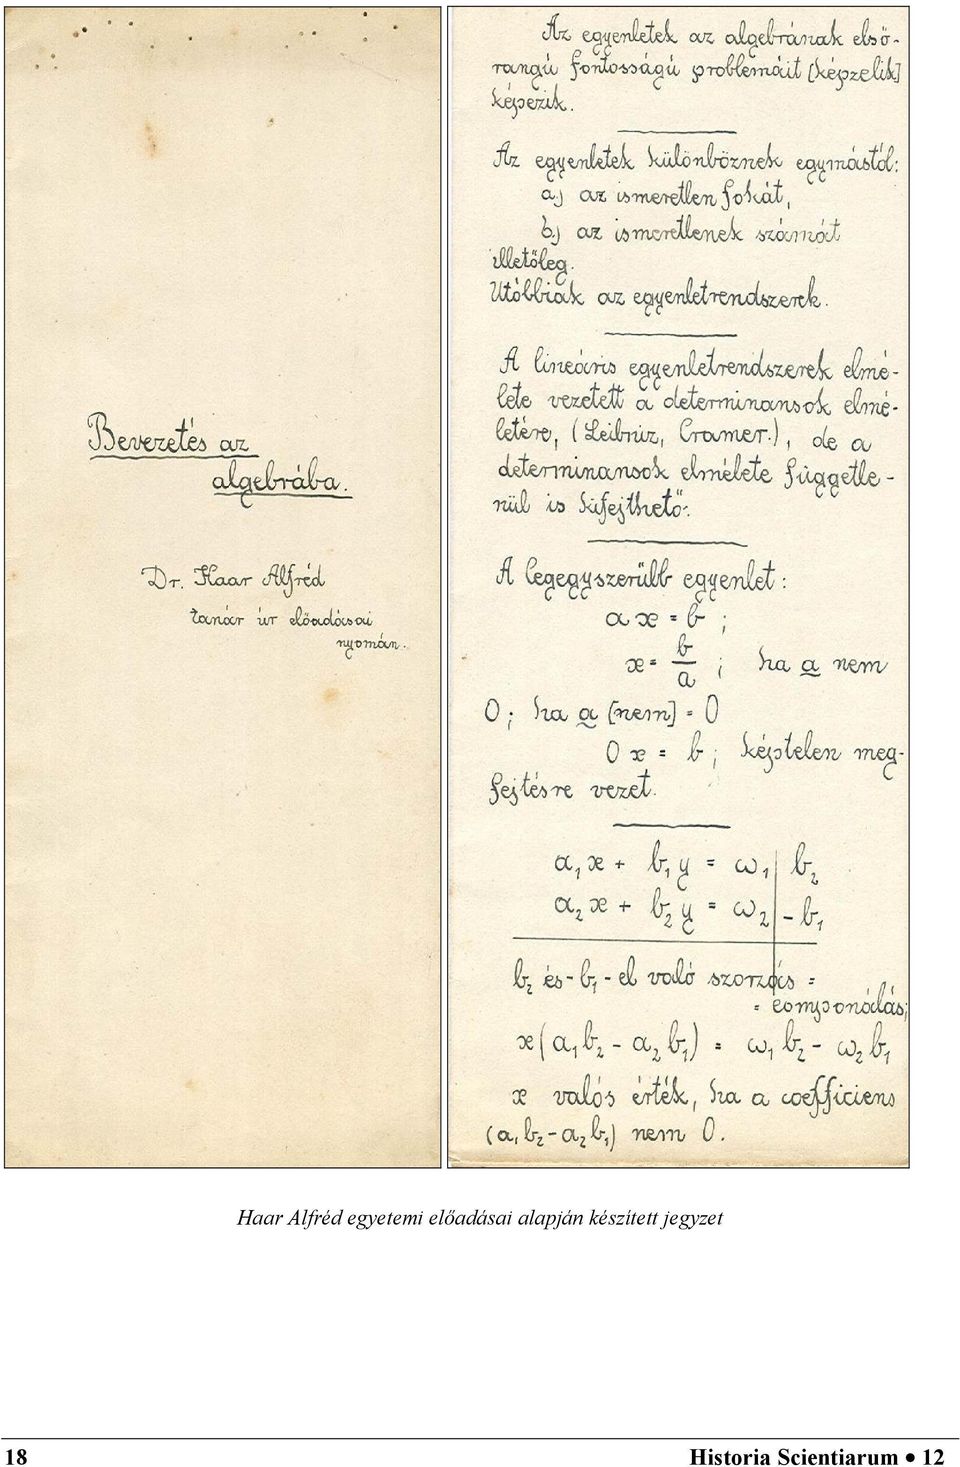 Bevezetés az
algebrába.
Dr. Haar Alfréd
tanár úr előadásai
nyomán.
Az egyenletek az algebrának első-
rangú fontosságú problémáit [képzelik]
képezik.
Az egyenletek különböznek egymástól:
a.) az ismeretlen fokát,
b.) az ismeretlenek számát
illetőleg.
Utóbbiak az egyenletrendszerek.
A lineáris egyenletrendszerek elmé-
lete vezetett a determinansok elmé-
letére, (Leibniz, Cramer.), de a
determinansok elmélete függetle-
nül is kifejthető.
A legegyszerübb egyenlet:
ax = b ;
x = b/a ; ha a nem
0 ; ha a [nem] = 0
0 x = b ; képtelen meg-
fejtésre vezet.
a₁x + b₁y = ω₁ | b₂
a₂x + b₂y = ω₂ | - b₁
b₂ és - b₁ - el való szorzás =
= componálás;
x (a₁b₂ - a₂b₁) = ω₁b₂ - ω₂b₁
x valós érték, ha a coefficiens
(a₁b₂ - a₂b₁) nem 0.
Haar Alfréd egyetemi előadásai alapján készített jegyzet
18 Historia Scientiarum • 12